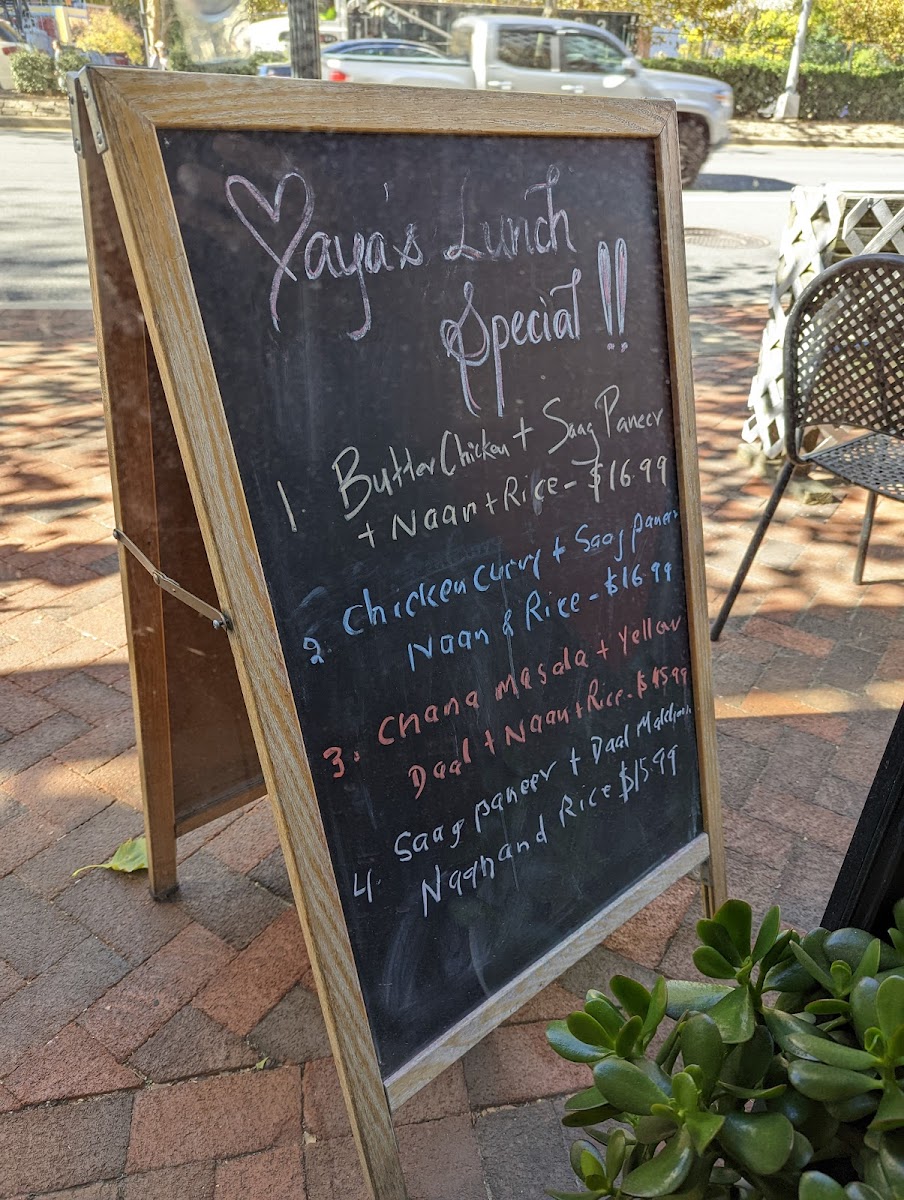 Yaya's Lunch
Special!!
1 Butter Chicken + Saag Paneer
+ Naan + Rice - $16.99
2 Chicken Curry + Saag paneer
Naan & Rice - $16.99
3. Chana Masala + Yellow
Daal + Naan + Rice - $15.99
4. Saag paneer + Daal
Naan and Rice $15.99